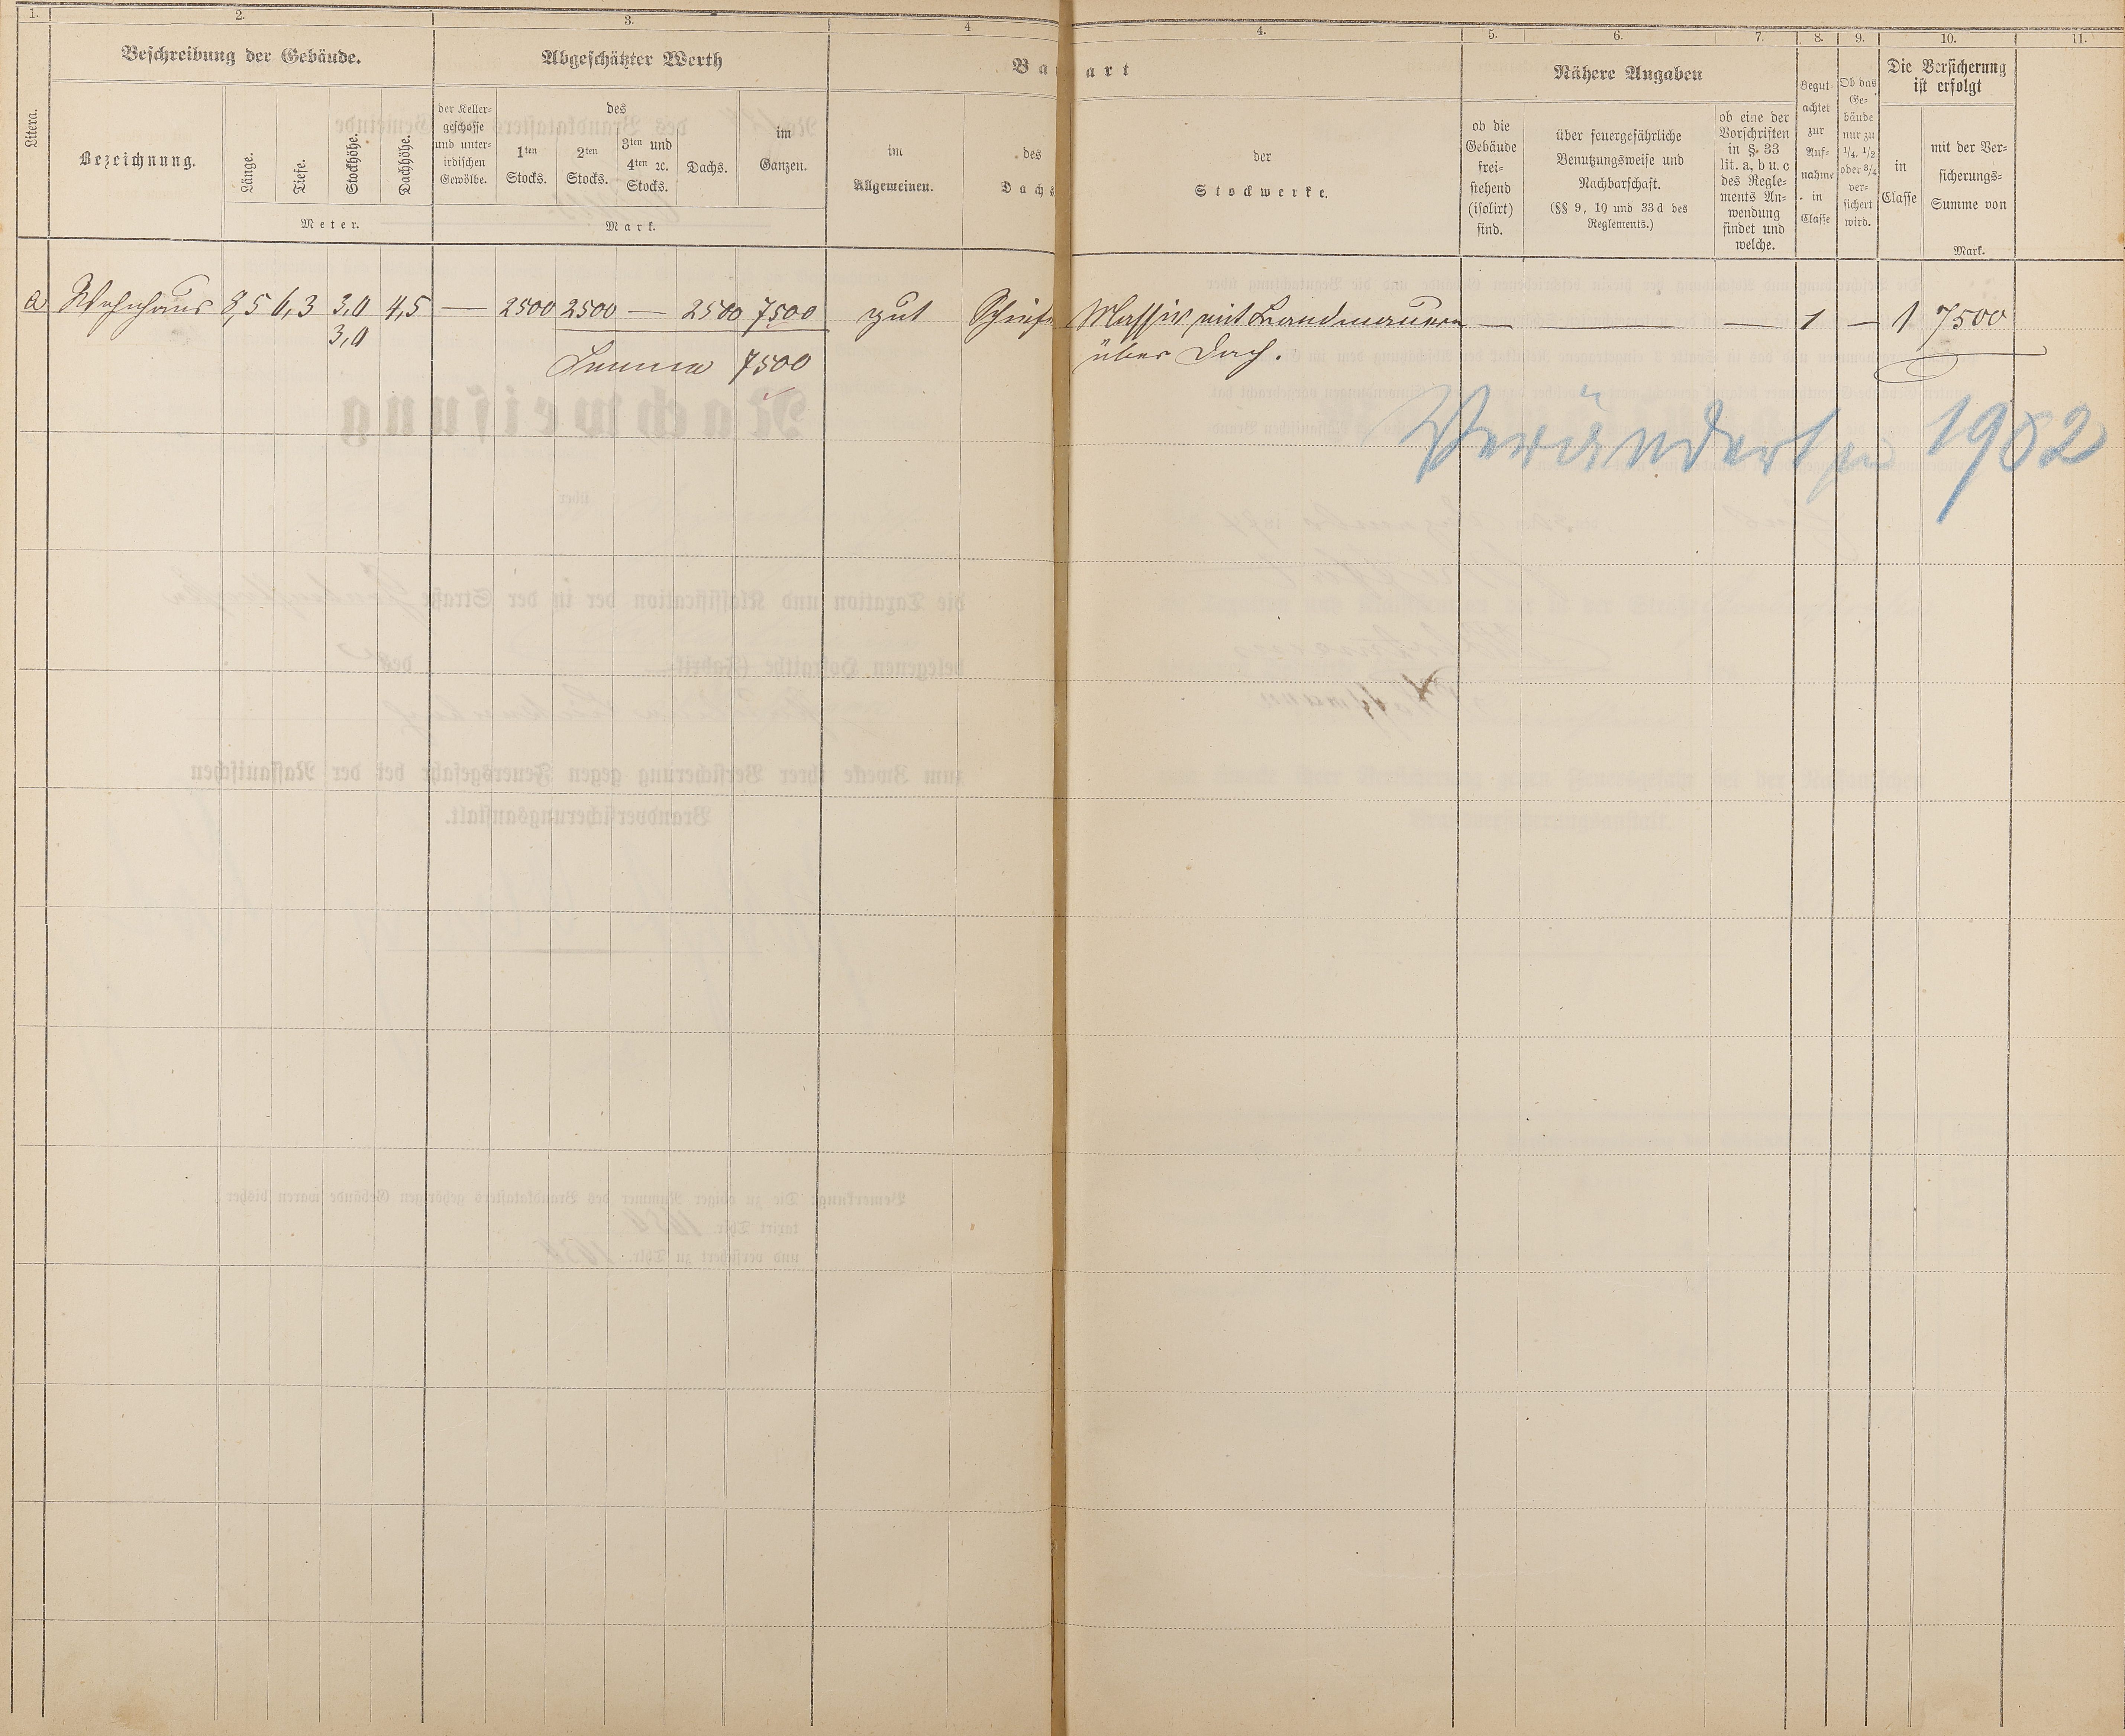 1. 2. 3. 4 4. 5. 6. 7. 8. 9. 10. 11.
Litera.
Beschreibung der Gebäude.
Bezeichnung.
Länge.
Tiefe.
Stockhöhe.
Dachhöhe.
Meter.
Abgeschätzter Werth
der Keller-
geschosse
und unter-
irdischen
Gewölbe.
des
1ten
Stocks.
2ten
Stocks.
3ten und
4ten ꝛc.
Stocks.
Dachs.
im
Ganzen.
Mark.
Ba art
im
Allgemeinen.
des
Dachs
der
Stockwerke.
Nähere Angaben
ob die
Gebäude
frei-
stehend
(isolirt)
sind.
über feuergefährliche
Benutzungsweise und
Nachbarschaft.
(§§ 9, 10 und 33 d des
Reglements.)
ob eine der
Vorschriften
in §. 33
lit. a, b u. c
des Regle-
ments An-
wendung
findet und
welche.
Begut-
achtet
zur
Auf-
nahme
in
Classe
Ob das
Ge-
bäude
nur zu
1/4, 1/2
oder 3/4
ver-
sichert
wird.
Die Versicherung
ist erfolgt
in
Classe
mit der Ver-
sicherungs-
Summe von
Mark.
a Wohnhaus 8,5 6,3 3,0 4,5 — 2500 2500 — 2500 7500 gut Schiefe Massiv, mit Brandmauern — — — 1 — 1 7500
3,0
Summa 7500
über Dach.
Verändert pro 1902